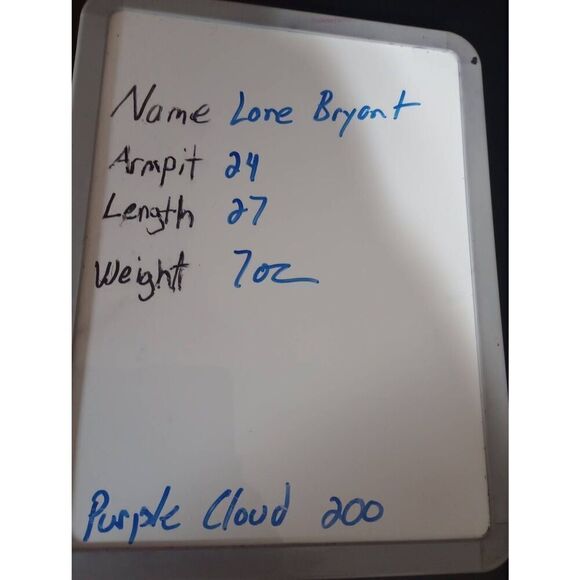 Name Lane Bryant
Armpit 24
Length 27
Weight 7oz
Purple Cloud 200